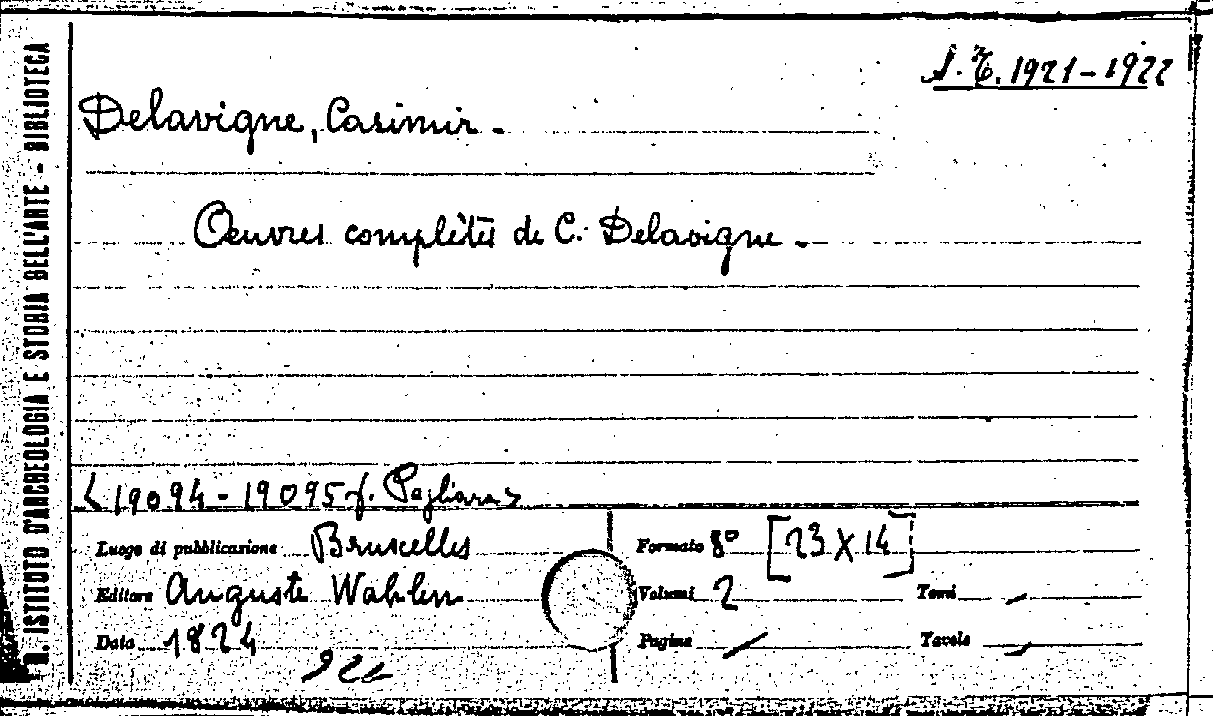 R. ISTITUTO D'ARCHEOLOGIA E STORIA DELL'ARTE - BIBLIOTECA
S.T. 1921-1922
Delavigne, Casimir.
Oeuvres complètes de C. Delavigne.
< 19094-19095 f. Pagliara >
Luogo di pubblicazione Bruxelles
Formato 8° [23 X 14]
Editore Auguste Wahlen
Volumi 2 Tomi /
Data 1824
Pagine / Tavole /